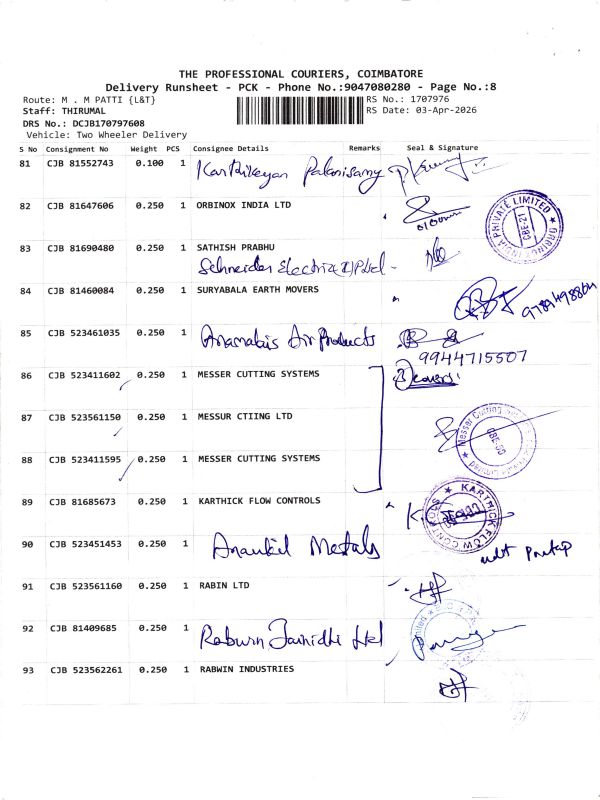 THE PROFESSIONAL COURIERS, COIMBATORE
Delivery Runsheet - PCK - Phone No.:9047080280 - Page No.:8
Route: M . M PATTI {L&T} RS No.: 1707976
Staff: THIRUMAL RS Date: 03-Apr-2026
DRS No.: DCJB170797608
Vehicle: Two Wheeler Delivery
S No Consignment No Weight PCS Consignee Details Remarks Seal & Signature
81 CJB 81552743 0.100 1 Karthikeyan Palanisamy
82 CJB 81647606 0.250 1 ORBINOX INDIA LTD
ORBINOX INDIA PRIVATE LIMITED CBE-21
83 CJB 81690480 0.250 1 SATHISH PRABHU
Schneider Electric
84 CJB 81460084 0.250 1 SURYABALA EARTH MOVERS
85 CJB 523461035 0.250 1 Air Products
9944715507
86 CJB 523411602 0.250 1 MESSER CUTTING SYSTEMS
3 covers
87 CJB 523561150 0.250 1 MESSUR CTIING LTD
88 CJB 523411595 0.250 1 MESSER CUTTING SYSTEMS
89 CJB 81685673 0.250 1 KARTHICK FLOW CONTROLS
KARTHICK FLOW CONTROLS
90 CJB 523451453 0.250 1 Metals
91 CJB 523561160 0.250 1 RABIN LTD
92 CJB 81409685 0.250 1
93 CJB 523562261 0.250 1 RABWIN INDUSTRIES